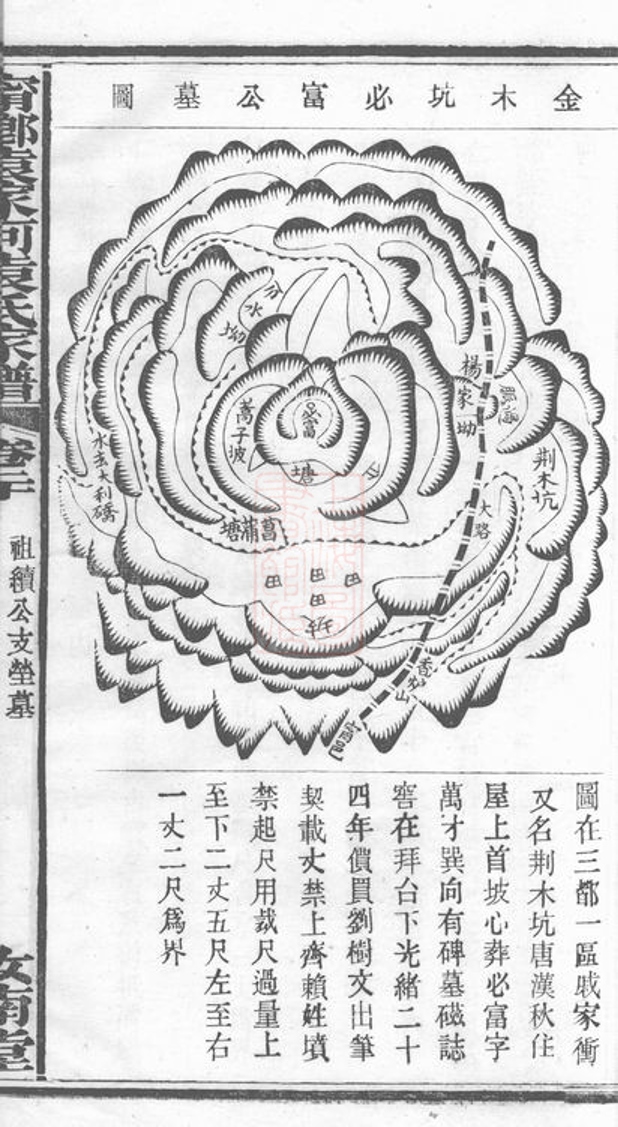 金木坑必富公墓圖
甯鄉袁家河袁氏家譜
卷二
祖續公支塋墓
汝南堂
分水坳
楊家坳
荆木坑
大路
必富
蒿子坡
塘
菖蒲塘
水去大利磡
田
田
田
田
香炉山
甯邑
圖在三都一區戚家衝
又名荆木坑唐漢秋住
屋上首坡心葬必富字
萬才巽向有碑墓磁誌
窖在拜台下光緒二十
四年價買劉樹文出筆
契載丈禁上齊賴姓墳
禁起尺用裁尺過量上
至下二丈五尺左至右
一丈二尺爲界